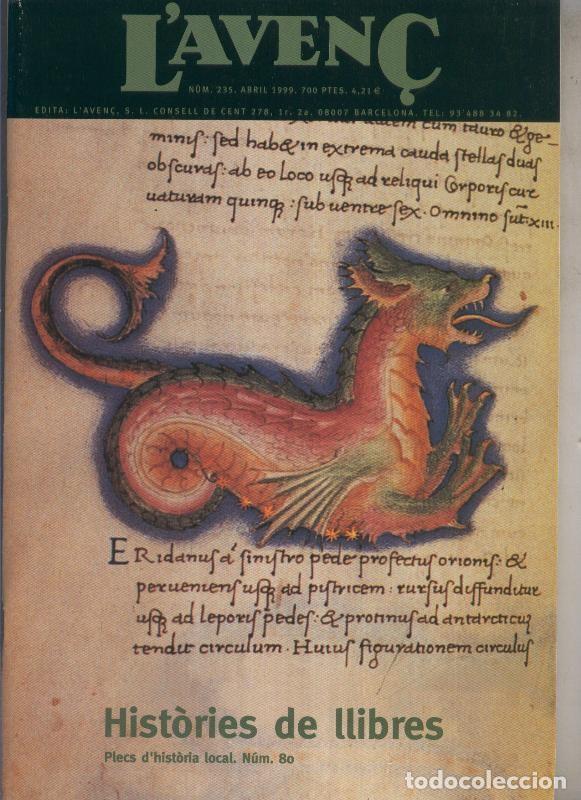 L'AVENÇ
NÚM. 235. ABRIL 1999. 700 PTES. 4,21 €
EDITA: L'AVENÇ, S. L. CONSELL DE CENT 278, 1r. 2a. 08007 BARCELONA. TEL: 93'488 34 82.
cum tauro & ge-
minis: sed hab& in extrema cauda stellas duas
obscuras: ab eo loco usq; ad reliqui Corporis cur
uaturam quinq; : sub uentre sex. Omnino sūt. xiii.
ERidanus a sinistro pede profectus orionis: &
perueniens usq; ad pistricem: rursus diffunditur
usq; ad leporis pedes: & protinus ad antarcticū
tendit circulum. Huius figurationem circulus
Històries de llibres
Plecs d'història local. Núm. 80
todocoleccion